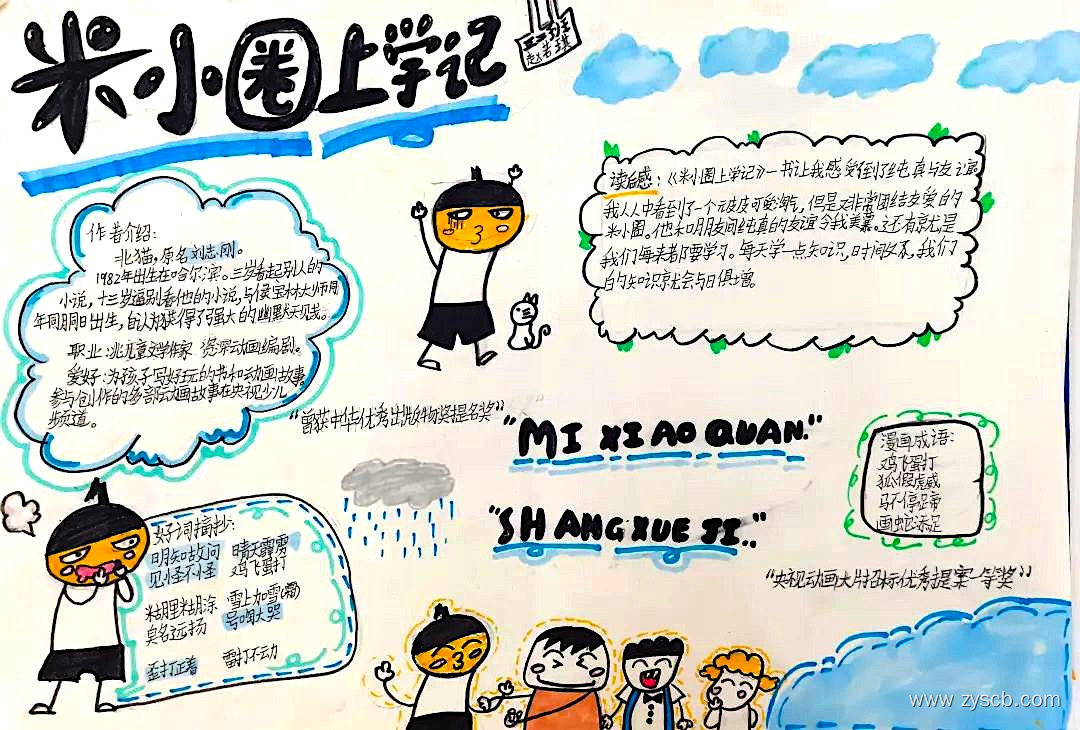 米小圈上学记
作者介绍:
北猫，原名刘志刚。
1982年出生在哈尔滨。三岁看起别人的
小说，十三岁逼别看他的小说，与侯宝林大师同
年同月同日出生，自认为获得了强大的幽默天赋。
职业:兆儿童文学作家 资深动画编剧。
爱好:为孩子写好玩的书和动画故事。
参与创作的多部动画故事在央视少儿
频道。
读后感:《米小圈上学记》一书让我感受到了纯真与友谊
我从中看到了一个顽皮可爱淘气，但是又非常团结友爱的
米小圈。他和朋友间纯真的友谊令我羡慕。还有就是
我们每来者都要学习。每天学一点知识，时间久了，我们
的知识就会与日俱增。
“曾获中华优秀出版物奖提名奖”
"MI XIAO QUAN."
"SHANG XUE JI.."
漫画成语:
鸡飞蛋打
狐假虎威
马不停蹄
画蛇添足
“央视动画大片招标优秀提案一等奖”
好词摘抄:
明知故问 晴天霹雳
见怪不怪 鸡飞蛋打
糊里糊涂 雪上加雪(霜)
臭名远扬 号啕大哭
歪打正着 雷打不动
www.zyscb.com